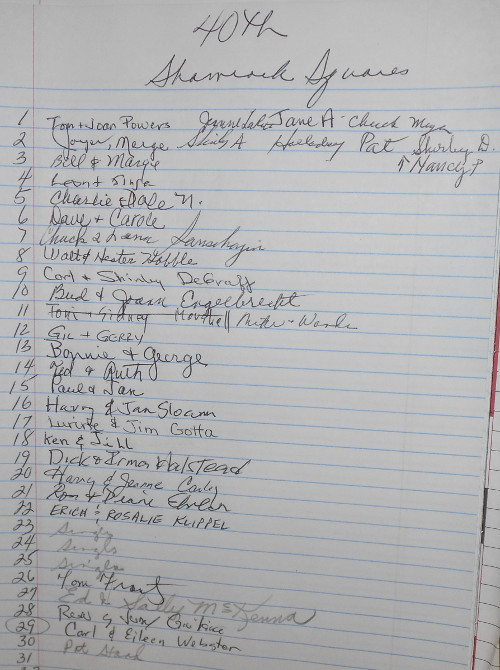 40th
Shamrock Squares
1 Tom + Joan Powers Jane A - Chuck
2 Joyce, Marge Shirley A Holladay Pat Shirley D.
3 Bill & Marge ↑ Nancy P
4 Leon +
5 Charlie & Dale N.
6 Dave + Carole
7 Chuck & Lana
8 Walt & Hester Hobble
9 Carl & Shirley DeGraff
10 Bud & Joann Engelbrecht
11 Tom + Sidney
12 GIL + GERRY
13 Bonnie & George
14 Ted & Ruth
15 Paul & Jan
16 Harry & Jan Sloann
17 & Jim Gotta
18 Ken & Jill
19 Dick & Irma Halstead
20 Harry & Jeanne
21 Ron & Diane
22 ERICH & ROSALIE KLIPPEL
23 Single
24 Single
25 Single
26 Tom Frantz
27 Ed & Sally McKenna
28 Ross & June
29 Carl & Eileen Webster
30 Pat
31